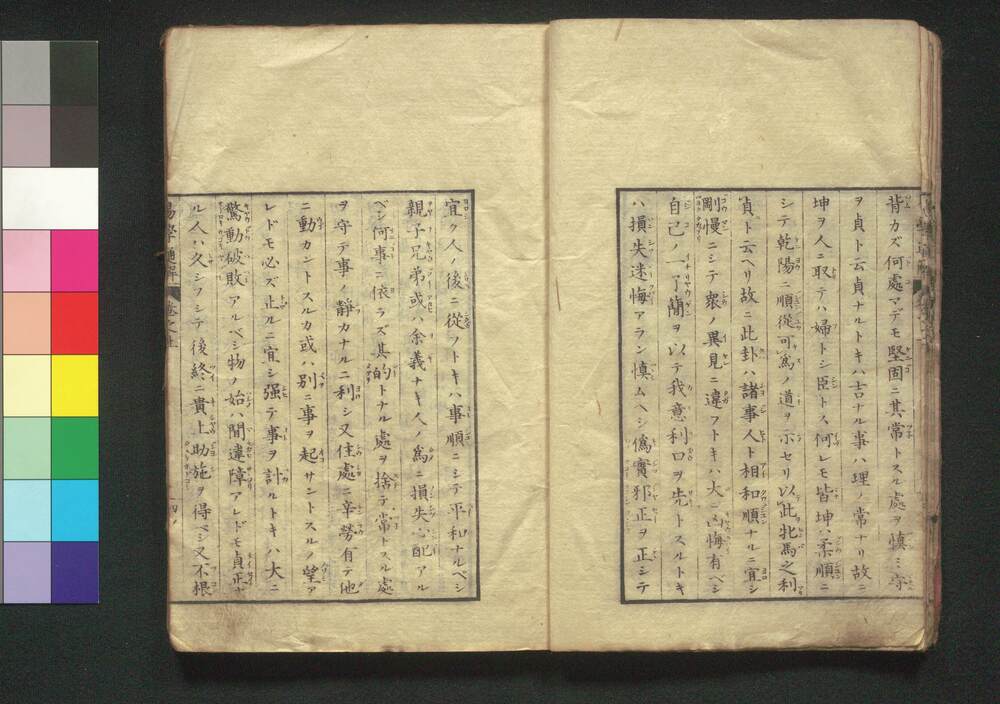 背カズ何處マデモ堅固ニ其常トスル處ヲ慎ミ守
ヲ貞ト云貞ナルトキハ吉ナル事ハ理ノ常ナリ故ニ
坤ヲ人ニ取テハ婦トシ臣トス何レモ皆坤、柔順ニ
シテ乾陽ニ順從可為ノ道ヲ示セリ以此牝馬之利
貞ト云ヘリ故ニ此卦ハ諸事人ト相和順ナルニ宜シ
剛慢ニシテ衆ノ異見ニ違フトキハ大ニ凶悔有ベシ
自己ノ一了簡ヲ以テ我意利口ヲ先トスルトキ
ハ損失迷悔アラン慎ムヘシ偽實邪正ヲ正シテ
宜ク人ノ後ニ從フトキハ事順ニシテ平和ナルベシ
親子兄弟或ハ余義ナキ人ノ為ニ損失心配アル
ベシ何事ニ依ラズ其的トナル處ヲ捨テ常トスル處
ヲ守テ事ノ靜カナルニ利シ又住處ニ辛勞有テ他
ニ動カントスルカ或ハ別ニ事ヲ起サントスルノ望ア
レドモ必ズ止ルニ宜シ强テ事ヲ計ルトキハ大ニ
驚動破敗アルベシ物ノ始ハ間違障アレドモ貞正ナ
ル人ハ久シフシテ後終ニ貴上助施ヲ得ベシ又不根